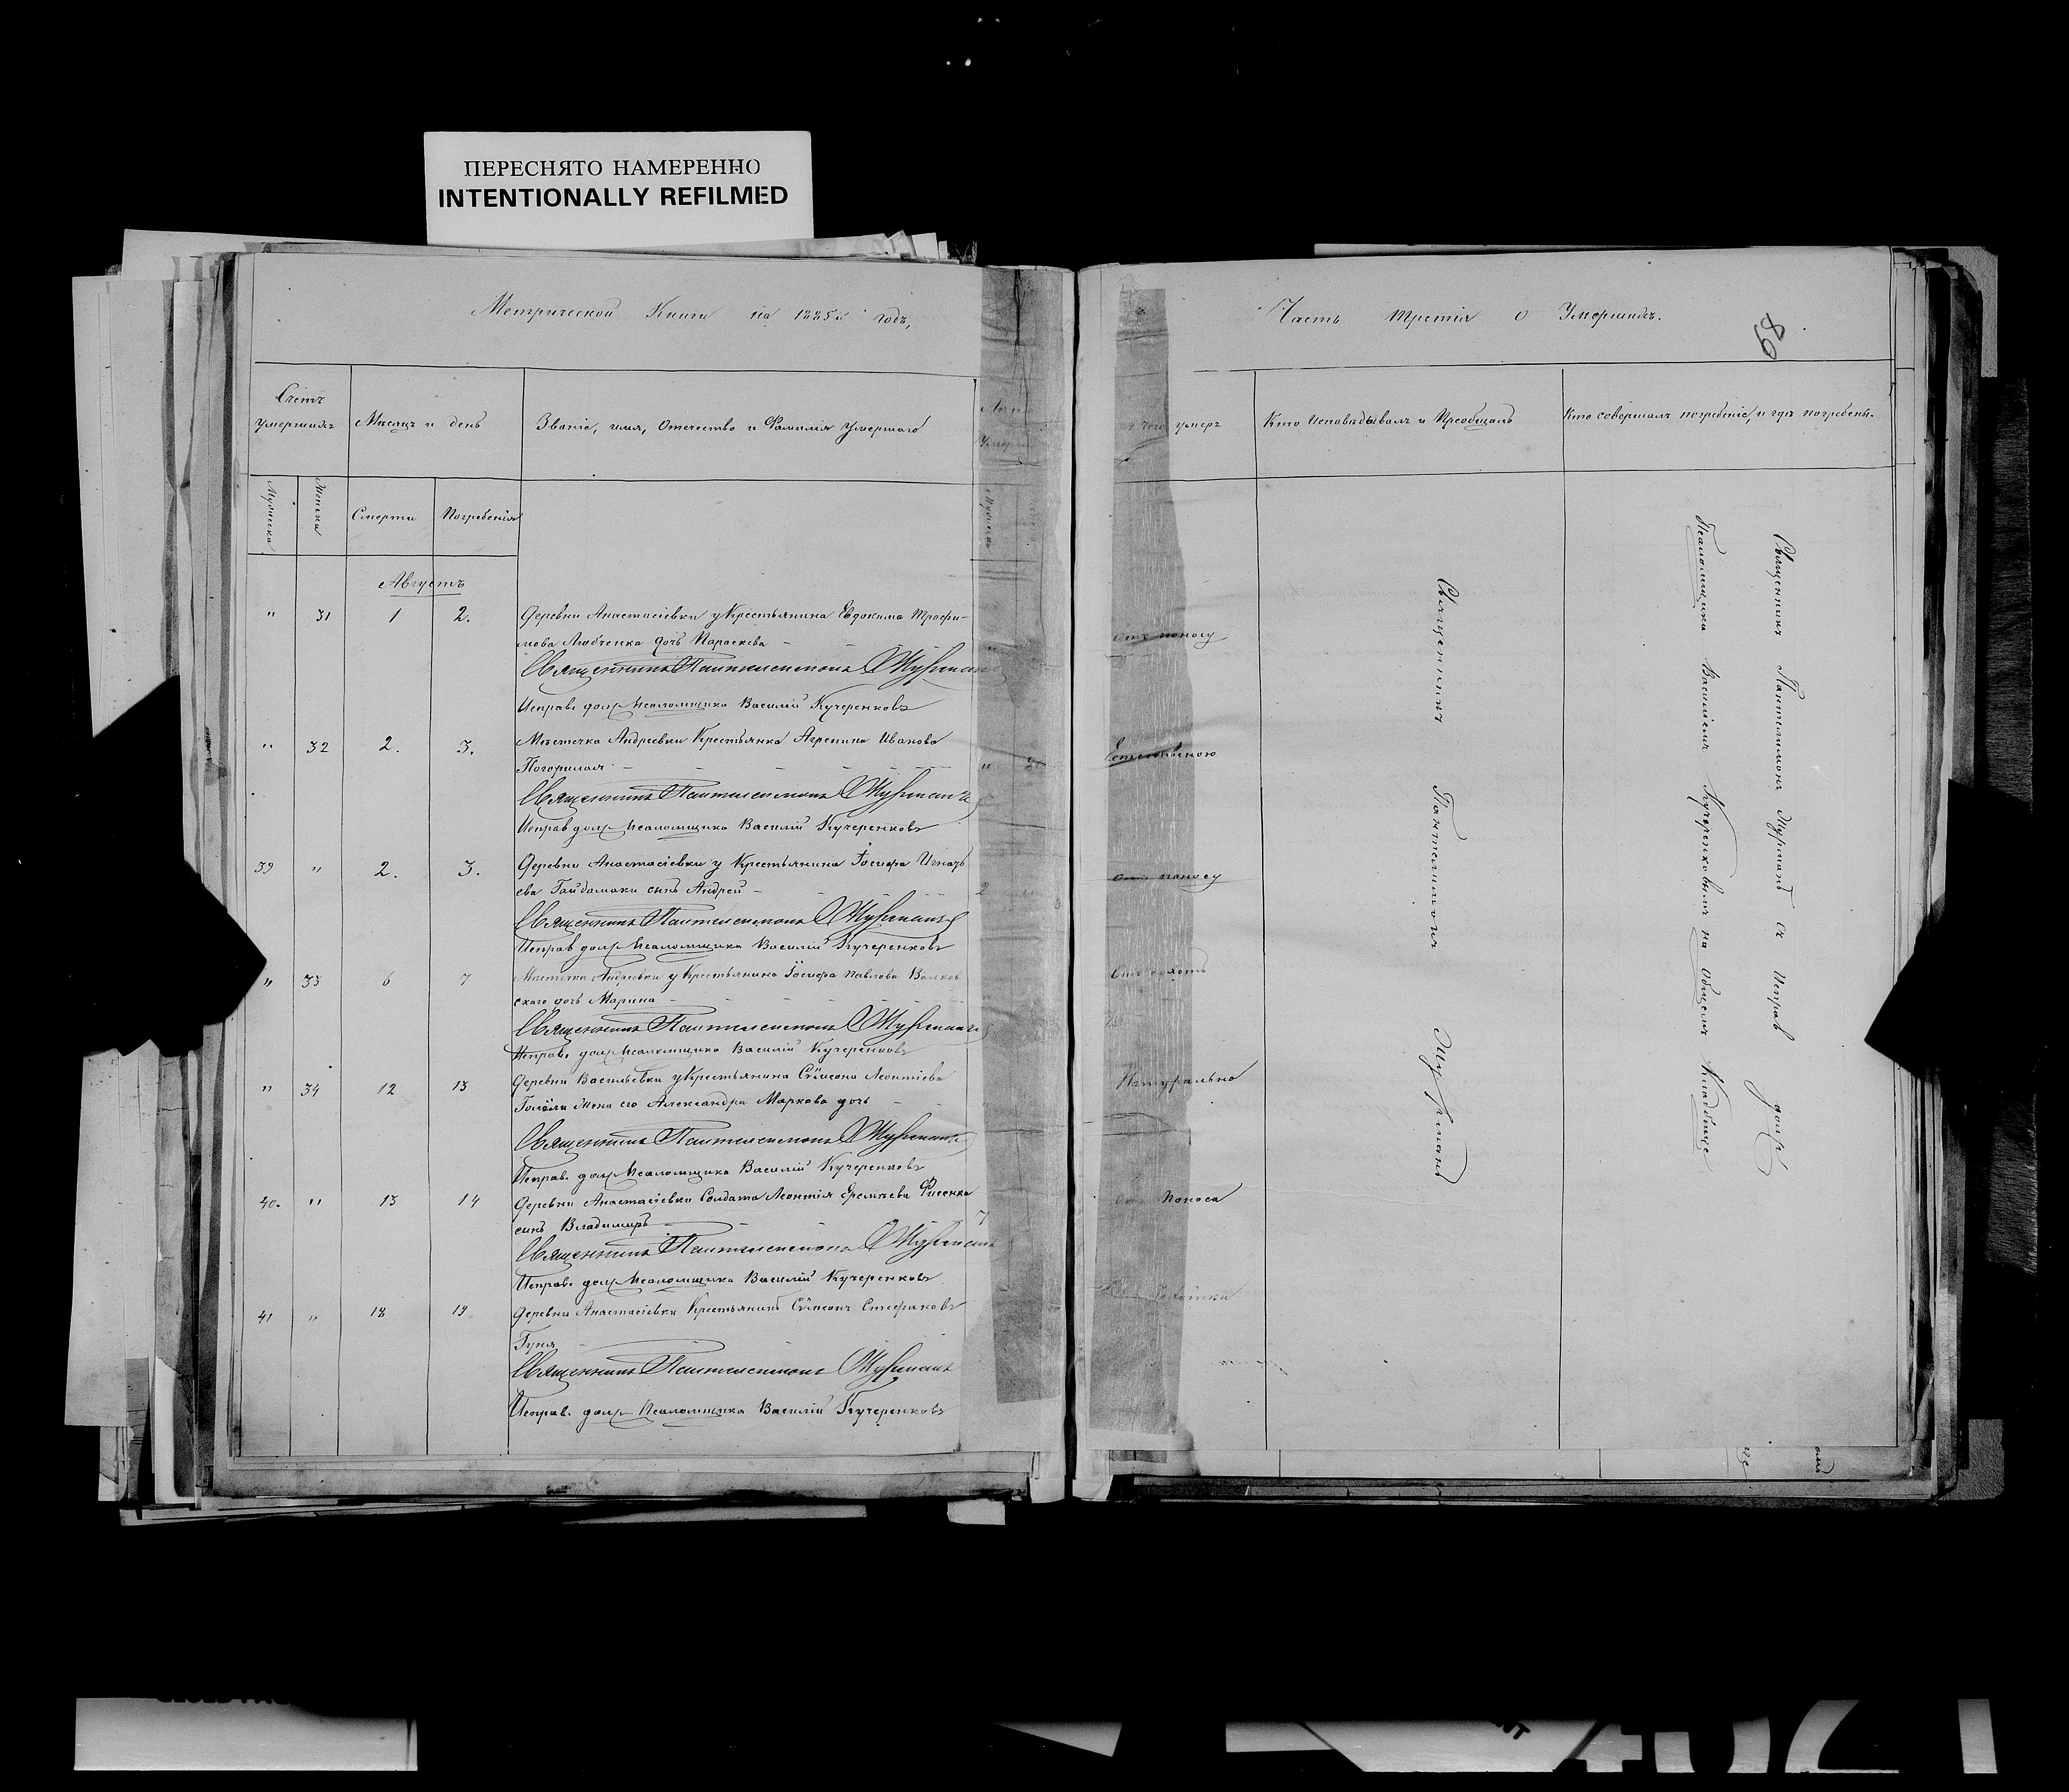 ПЕРЕСНЯТО НАМЕРЕННО
INTENTIONALLY REFILMED
Метрической Книги на 1885й годъ,
Счетъ умершихъ
Мѣсяцъ и день
Званіе, имя, Отчество и Фамилія Умершаго
Мужеска
Женска
Смерти
Погребенія
Августъ
" 31 1 2. Деревни Анастасіевки у Крестьянина Евдокима Трофи-
мова Любченка дочь Параскева
Священникъ Пантелеимонъ Журманъ
Исправ. долж Псаломщика Василій Кучеренковъ
" 32 2. 3. Мѣстечка Андреевки Крестьянка Агрепина Иванова
Погорилая
Священникъ Пантелеимонъ Журманъ
Исправ долж Псаломщика Василій Кучеренковъ
39 " 2. 3. Деревни Анастасіевки у Крестьянина Іосифа Игнать
ева Гайдамаки сынъ Андрей 2
Священникъ Пантелеимонъ Журманъ
Исправ долж Псаломщика Василій Кучеренковъ
" 33 6 7 Мѣстечка Андреевки у Крестьянина Іосифа Павлова
скаго дочь Марина
Священникъ Пантелеимонъ Журманъ
Исправ. долж Псаломщика Василій Кучеренковъ
" 34 12 13 Деревни Васильевки у Крестьянина Сѵмеона Леонтіева
жена его Александра Маркова дочь
Священникъ Пантелеимонъ Журманъ
Исправ. долж Псаломщика Василій Кучеренковъ
40. " 13 14 Деревни Анастасіевки Солдата Леонтія Еремѣева
сынъ Владимиръ
Священникъ Пантелеимонъ Журманъ
Исправ. долж Псаломщика Василій Кучеренковъ
41 " 18 19 Деревни Анастасіевки Крестьянинъ Сѵмеонъ Стефановъ
Гуня
Священникъ Пантелеимонъ Журманъ
Исправ. долж Псаломщика Василій Кучеренковъ
Часть третія о Умершихъ.
89
чего умеръ
Кто Исповѣдывалъ и Пріобщалъ
Кто совершалъ погребеніе, и гдѣ погребены.
отъ поносу
Естественою
отъ поносу
Натурально
Поноса
Священникъ Пантелимонъ Журманъ
Священникъ Пантелимонъ Журманъ съ Исправ долж
Псаломщика Василіемъ Кучеренковымъ на общемъ Кладбище